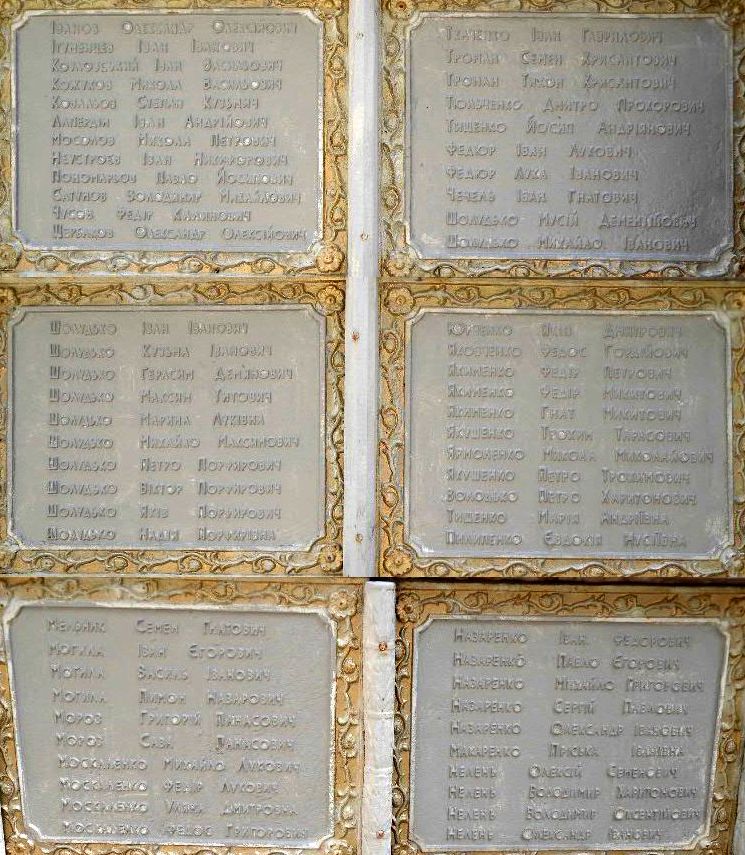 Іванов Олександр Олексійович
Ігуменцев Іван Іванович
Козловський Іван Васильович
Кожухов Микола Васильович
Ковальов Степан Кузьмич
Іван Андрійович
Мосолов Микола Петрович
Неустроєв Іван Никифорович
Пономарьов Павло Йосипович
Сатунов Володимир Михайлович
Чусов Федір Калинович
Щербаков Олександр Олексійович
Ткаченко Іван Гаврилович
Тронан Семен Хрисантович
Тронан Тихон Хрисантович
Дмитро Прохорович
Тищенко Йосип Андріянович
Федюр Іван Лукович
Федюр Лука Іванович
Чечель Іван Гнатович
Шолудько Мусій Дементійович
Шолудько Михайло Іванович
Шолудько Іван Іванович
Шолудько Кузьма Іванович
Шолудько Герасим Дем'янович
Шолудько Максим Титович
Шолудько Марина Луківна
Шолудько Михайло Максимович
Шолудько Петро Порфирович
Шолудько Віктор Порфирович
Шолудько Яків Порфирович
Шолудько Надія Порфирівна
Юрченко Яким Дмитрович
Яковченко Федос Гордійович
Якименко Федір Петрович
Якименко Федір Микитович
Якименко Гнат Микитович
Якушенко Трохим Тарасович
Ярмоленко Микола Миколайович
Якушенко Петро Трохимович
Володько Петро Харитонович
Тищенко Марія Андріївна
Пилипенко Євдокія Мусіївна
Мельник Семен Гнатович
Могила Іван Єгорович
Могила Василь Іванович
Могила Пимон Назарович
Мороз Григорій Панасович
Мороз Сава Панасович
Москаленко Михайло Лукович
Москаленко Федір Лукович
Москаленко Уляна Дмитровна
Москаленко Федос Григорович
Назаренко Іван Федорович
Назаренко Павло Єгорович
Назаренко Михайло Григорович
Назаренко Сергій Павлович
Назаренко Олександр Іванович
Макаренко Пріська Іванівна
Нелень Олексій Семенович
Нелень Володимир Харитонович
Нелень Володимир Оксентійович
Нелень Олександр Іванович